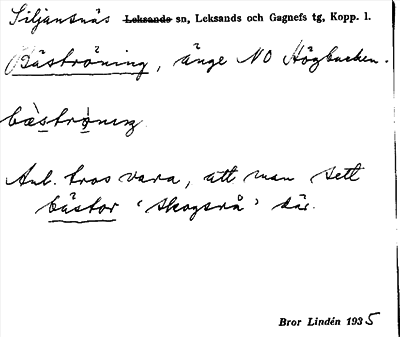 Siljansnäs Leksands sn, Leksands och Gagnefs tg, Kopp. l.
Bäströning, änge NO Högbacken.
bæ̀strǫnıŋg
Anl. tros vara, att man sett
bästor 'skogsrå' där.
Bror Lindén 1935